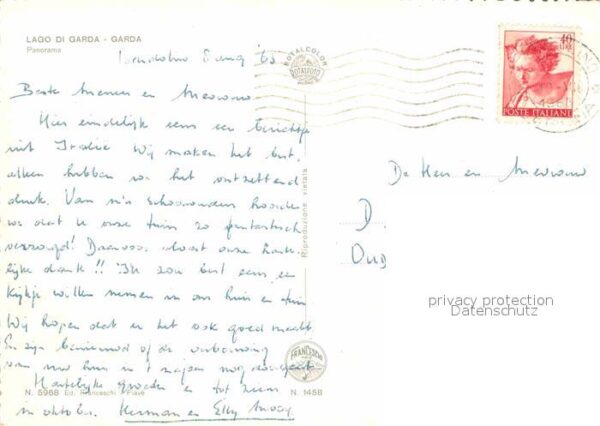 LAGO DI GARDA - GARDA
Panorama
8 aug '63
Beste Meneer en Mevrouw
Hier eindelijk eens een berichtje
uit Italië Wij maken het best,
alleen hebben we het ontzettend
druk. Van m'n schoonouders hoorden
we dat U onze tuin zo fantastisch
verzorgd! Daarvoor alvast onze harte-
lijke dank!! Ik zou best eens een
kijkje willen nemen in ons huis en tuin
Wij hopen dat er het ook goed maakt
En zijn benieuwd of de verbouwing
van uw huis in 't najaar nog doorgaat
Hartelijke groeten en tot ziens
in oktober. Herman en Elly
N. 5968 Ed. Franceschi - Piave N. 1458
ROTALCOLOR
ROTALFOTO
MILANO
Riproduzione vietata
FRANCESCHI
40
LIRE
POSTE ITALIANE
De Heer en Mevrouw
D.
Oud
privacy protection
Datenschutz